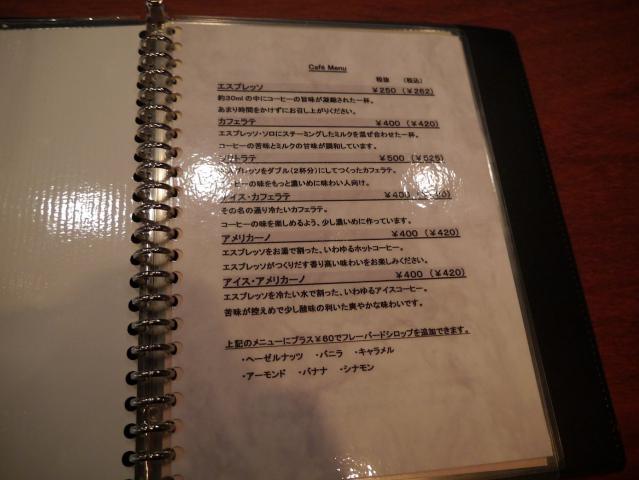 Café Menu
税抜 (税込)
エスプレッソ ¥250 (¥262)
約30mlの中にコーヒーの旨味が凝縮された一杯。
あまり時間をかけずにお召し上がりください。
カフェラテ ¥400 (¥420)
エスプレッソ・ソロにスチーミングしたミルクを混ぜ合わせた一杯。
コーヒーの苦味とミルクの甘味が調和しています。
¥500 (¥525)
をダブル(2杯分)にしてつくったカフェラテ。
ーの味をもっと濃いめに味わい人向け。
アイス・カフェラテ ¥400
その名の通り冷たいカフェラテ。
コーヒーの味を楽しめるよう、少し濃いめに作っています。
アメリカーノ ¥400 (¥420)
エスプレッソをお湯で割った、いわゆるホットコーヒー。
エスプレッソがつくりだす香り高い味わいをお楽しみください。
アイス・アメリカーノ ¥400 (¥420)
エスプレッソを冷たい水で割った、いわゆるアイスコーヒー。
苦味が控えめで少し酸味の利いた爽やかな味わいです。
上記のメニューにプラス¥60でフレーバードシロップを追加できます。
・ヘーゼルナッツ ・バニラ ・キャラメル
・アーモンド ・バナナ ・シナモン